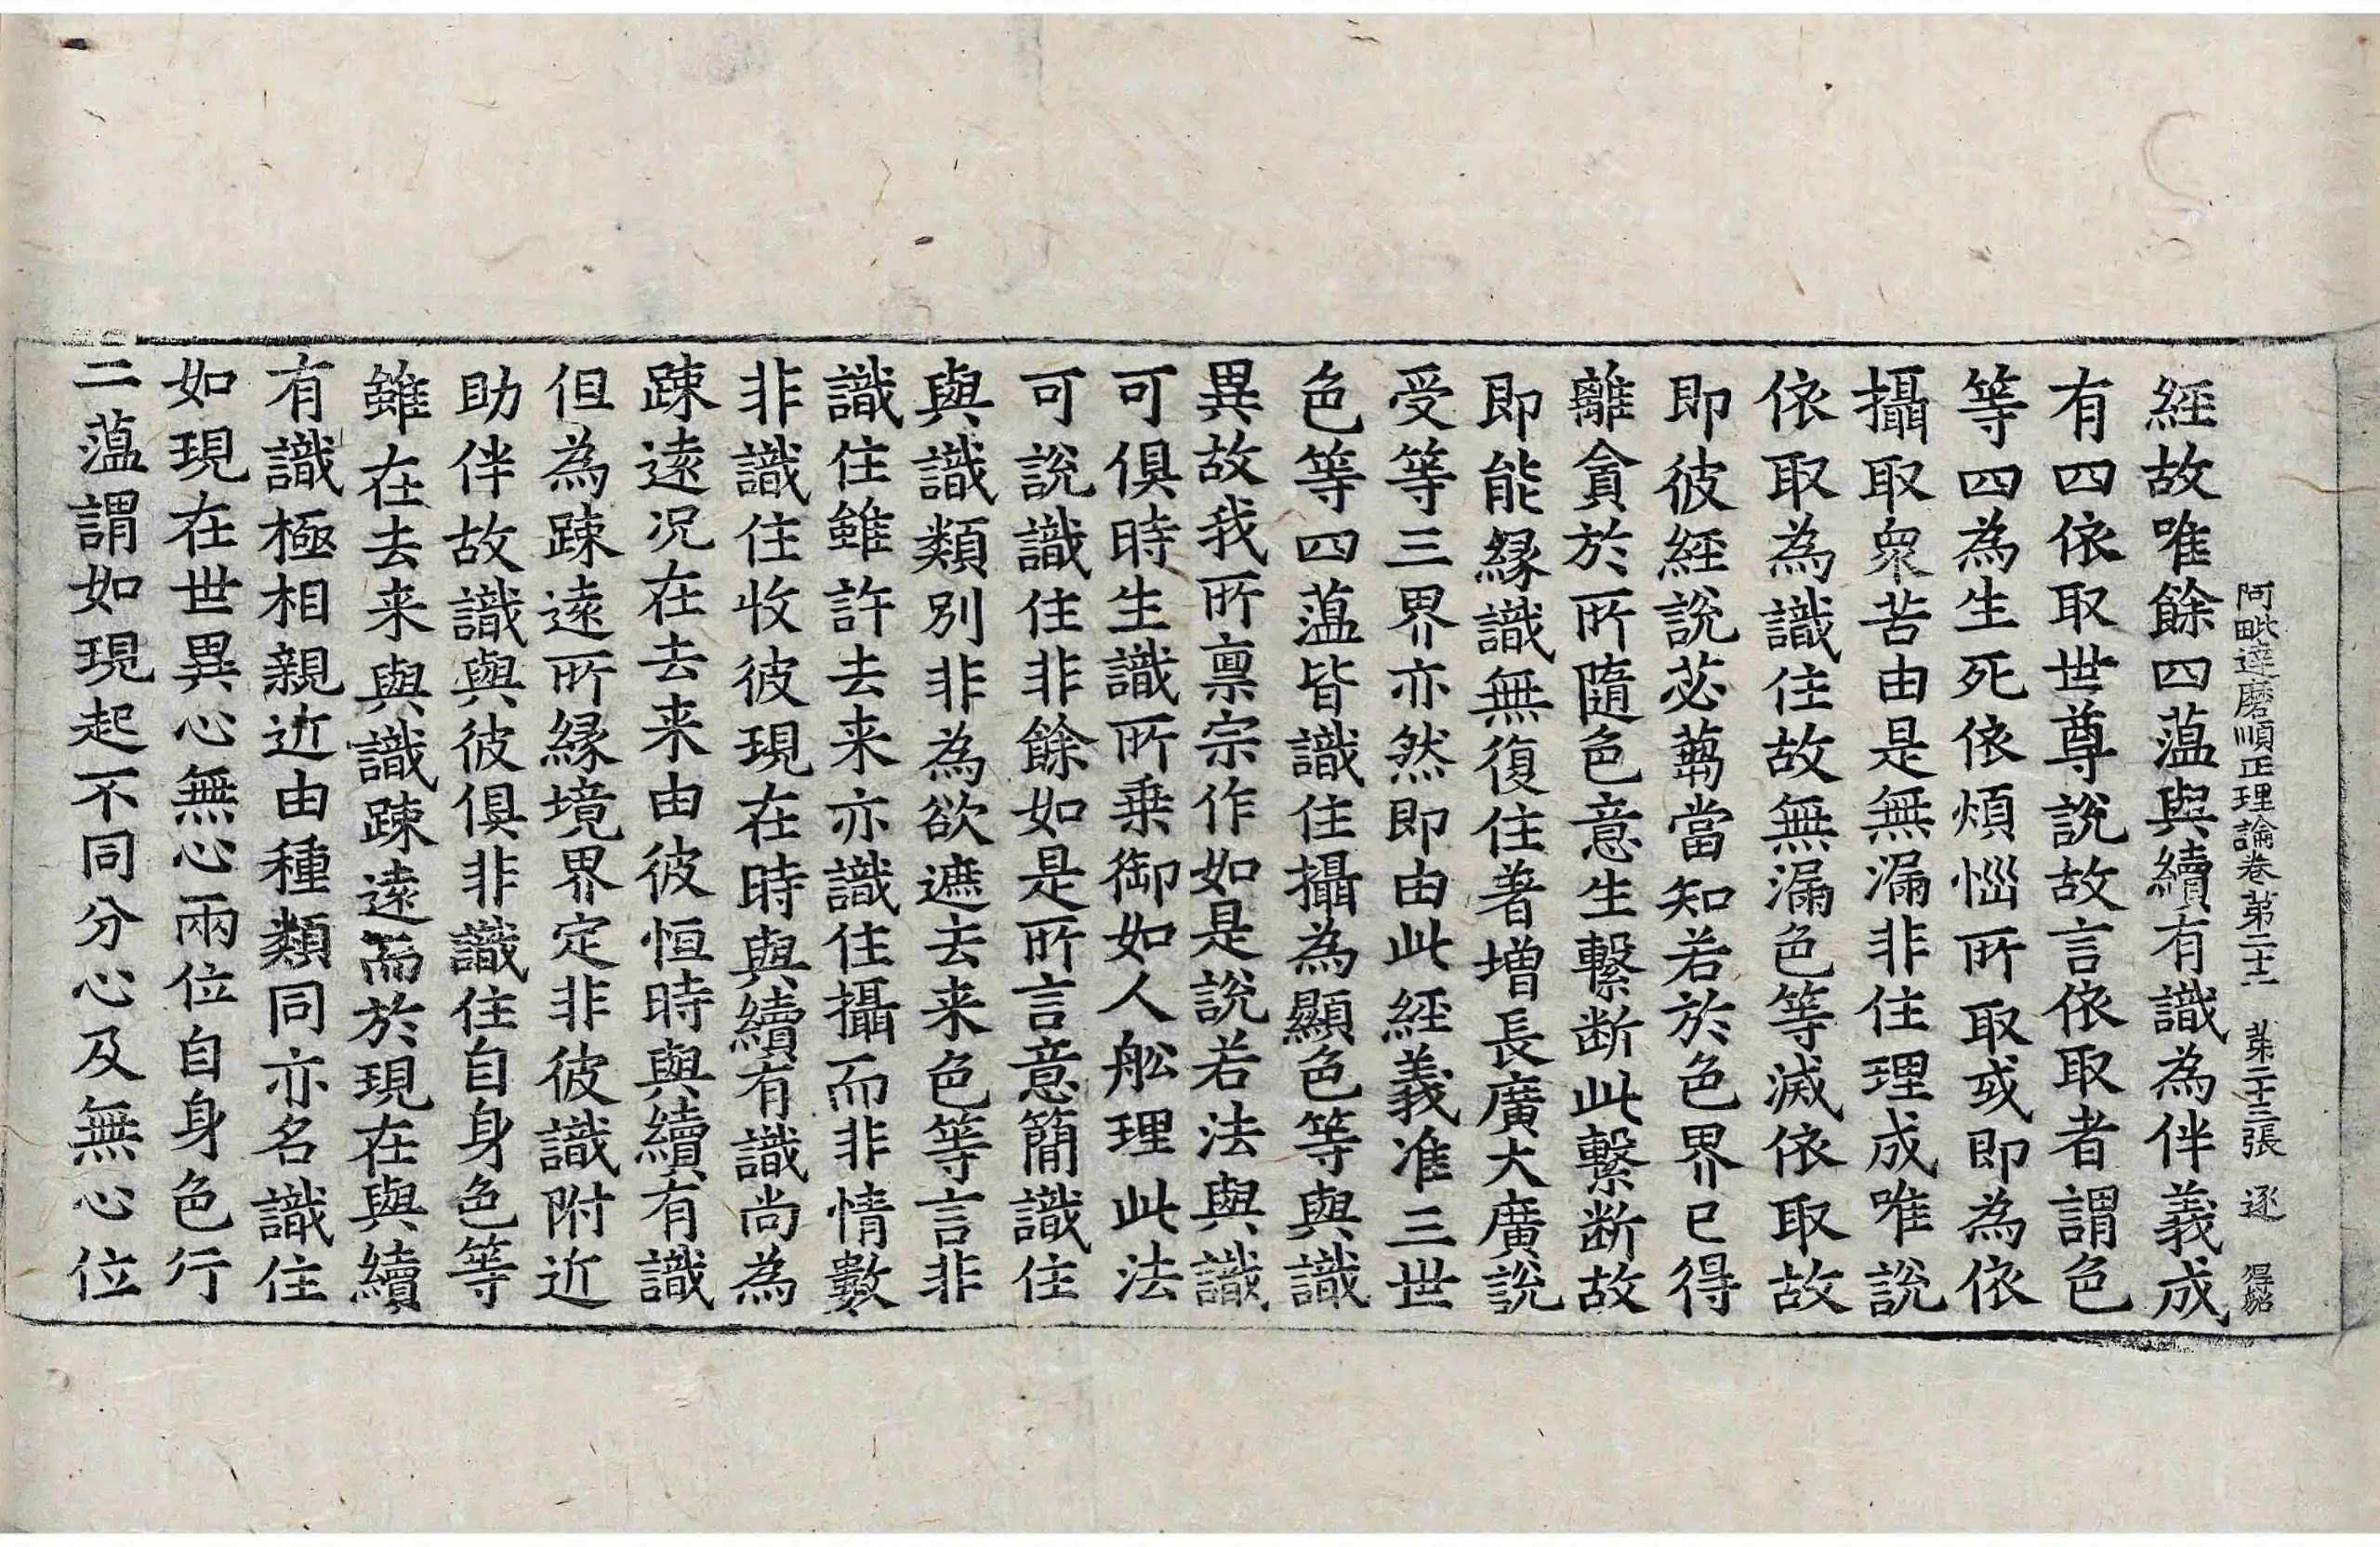 阿毗達磨順正理論卷第二十二 第二十三張 逐 得貂
經故唯餘四薀與續有識為伴義成
有四依取世尊說故言依取者謂色
等四為生死依煩惱所取或即為依
攝取衆苦由是無漏非住理成唯說
依取為識住故無漏色等滅依取故
即彼經說苾蒭當知若於色界已得
離貪於所隨色意生繫断此繫断故
即能緣識無復住著增長廣大廣說
受等三界亦然即由此經義准三世
色等四薀皆識住攝為顯色等與識
異故我所稟宗作如是說若法與識
可俱時生識所乗御如人舩理此法
可說識住非餘如是所言意簡識住
與識類別非為欲遮去来色等言非
識住雖許去来亦識住攝而非情數
非識住收彼現在時與續有識尚為
踈遠况在去来由彼恒時與續有識
但為踈遠所緣境界定非彼識附近
助伴故識與彼俱非識住自身色等
雖在去来與識踈遠而於現在與續
有識極相親近由種類同亦名識住
如現在世異心無心兩位自身色行
二薀謂如現起不同分心及無心位